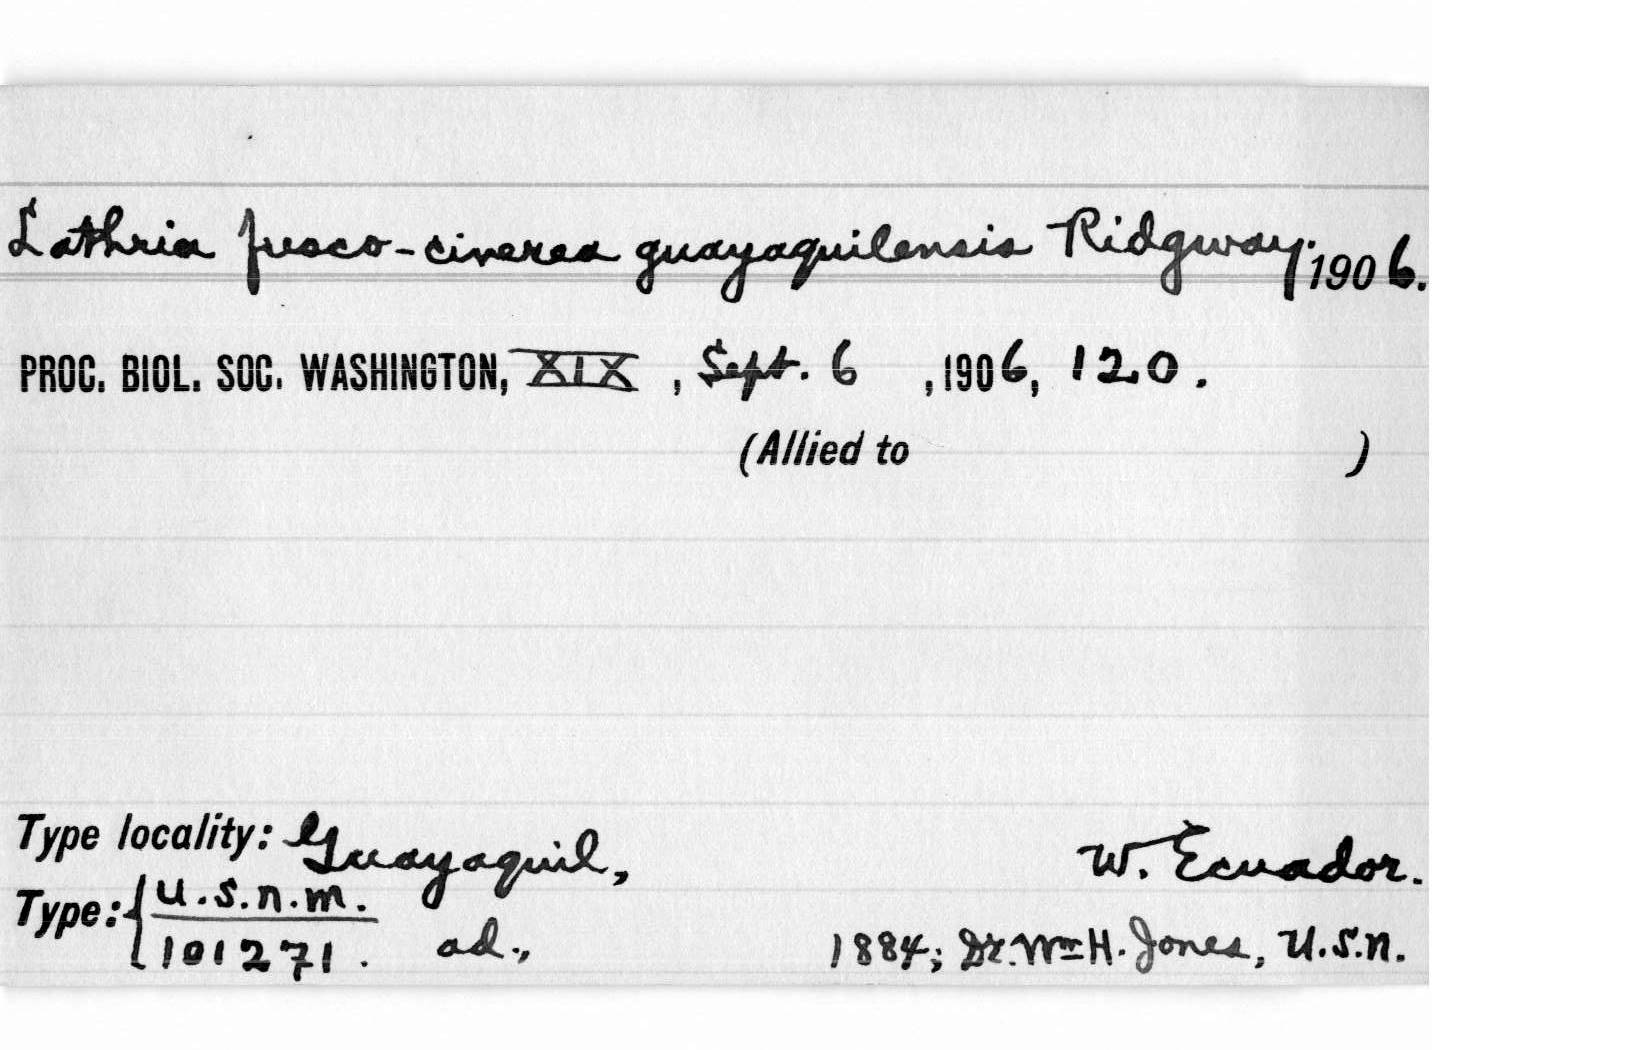 Lathria fusco-cinerea guayaquilensis Ridgway. 1906.
PROC. BIOL. SOC. WASHINGTON, XIX, Sept. 6, 1906, 120.
(Allied to )
Type locality: Guayaquil, W. Ecuador.
Type: { U.S.N.M.
101271. ad., 1884; Dr. Wm H. Jones, U.S.N.